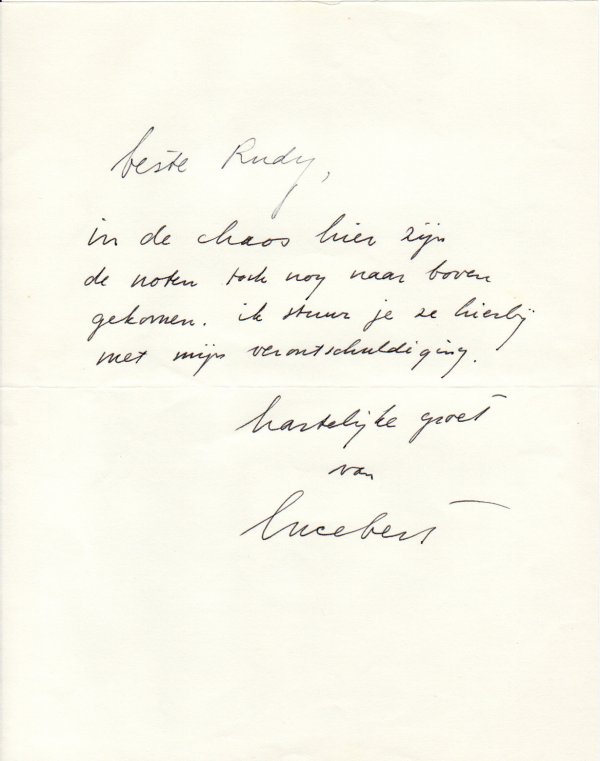 beste Rudy,
in de chaos hier zijn
de noten toch nog naar boven
gekomen. ik stuur je ze hierbij
met mijn verontschuldiging.
hartelijke groet
van
lucebert